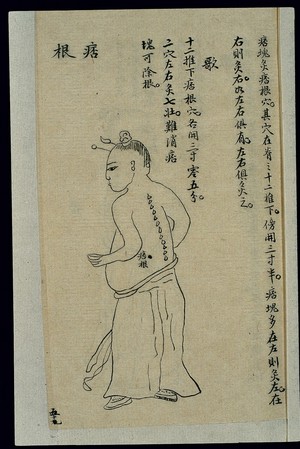 痞塊灸痞根穴。其穴在脊之十二椎下。傍開三寸半。痞塊多在左則灸左。在
右則灸右。如左右俱有。左右俱灸之。
歌
十二椎下痞根穴。各開三寸零五分。
二穴左右灸七壯。難消痞
塊可除根。
痞根
痞根